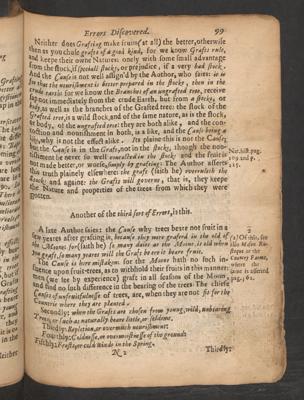 Errors Discovered. 99
Neither does Grafting make fruit (at all) the better, otherwise
then as you chuse grafts of a good kind, for we know Grafts rule,
and keepe their owne Natures: onely with some small advantage
from the stock, if specially stocks, or prejudice, if a very bad stock.
And the Cause is not well assign'd by the Author, who saies: it is
for that the nourishment is better prepared in the stocke, then in the
crude earth: for we know the Branches of an ungrafted tree, receive
sap not immediately from the crude Earth, but from a stocke, or
body, as well as the branches of the Grafted tree: the stock of the
Grafted tree, is a wild stock, and of the same nature, as is the stock,
or body, of the ungrafted tree: they are both alike, and the con-
coction and nourishment in both, is a like, and the Cause being a
like, why is not the effect alike. Its plaine this is not the Cause;
but the Cause is in the Grafts, not in the stocks, though the nou-
rishment be never so well concocted in the stocks and the fruit is
not made better, or worse, simply by grafting: The Author asserts
this truth plainely elsewhere: the graft (saith he) overruleth the
stock; and againe: the Grafts will governe, that is, they keepe
the Nature and properties of the trees from which they were
gotten.
Another of the third sort of Errors, is this.
A late Author saies: the Cause why trees beare not fruit in a
few yeares after grafting is, because they were grafted in the old of
the Moone: for (saith he) so many daies as the Moone, is old when
you graft, so many yeares will the Graft be ere it beare fruit.
The Cause is here mistaken: for the Moone hath no such in-
fluence upon fruit-trees, as to withhold their fruits in this manner:
men (as we see by experience) graft in all seasons of the Moone
and find no such difference in the bearing of the trees: The chiefe
Causes of unfruitfulnesse of trees, are, when they are not fit for the
Country where they are planted.
Secondly: when the Grafts are chosen from young, wild, unbearing
Trees, or such as naturally beare little, or seldome,
Thirdly: Repletion, or overmuch nourishment:
Fourthly: Coldnesse, or overmoistnesse of the ground:
Fifthly: Frosts, or cold Winds in the Spring.
N 2 Thirdly: